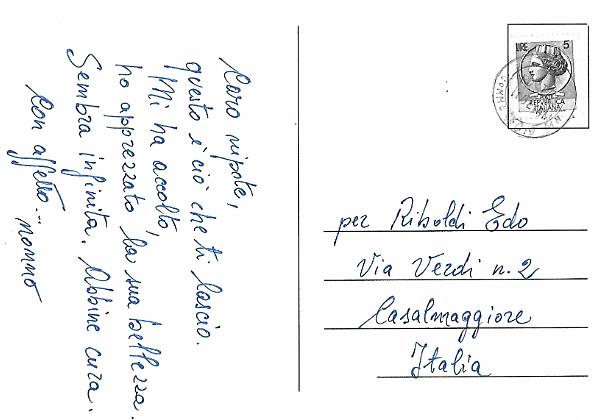 Caro nipote,
questo è ciò che ti lascio.
Mi ha accolto,
ho apprezzato la sua bellezza.
Sembra infinita. Abbine cura.
Con affetto... nonno
LIRE 5
REPUBBLICA
ITALIANA
per Riboldi Edo
Via Verdi n. 2
Casalmaggiore
Italia